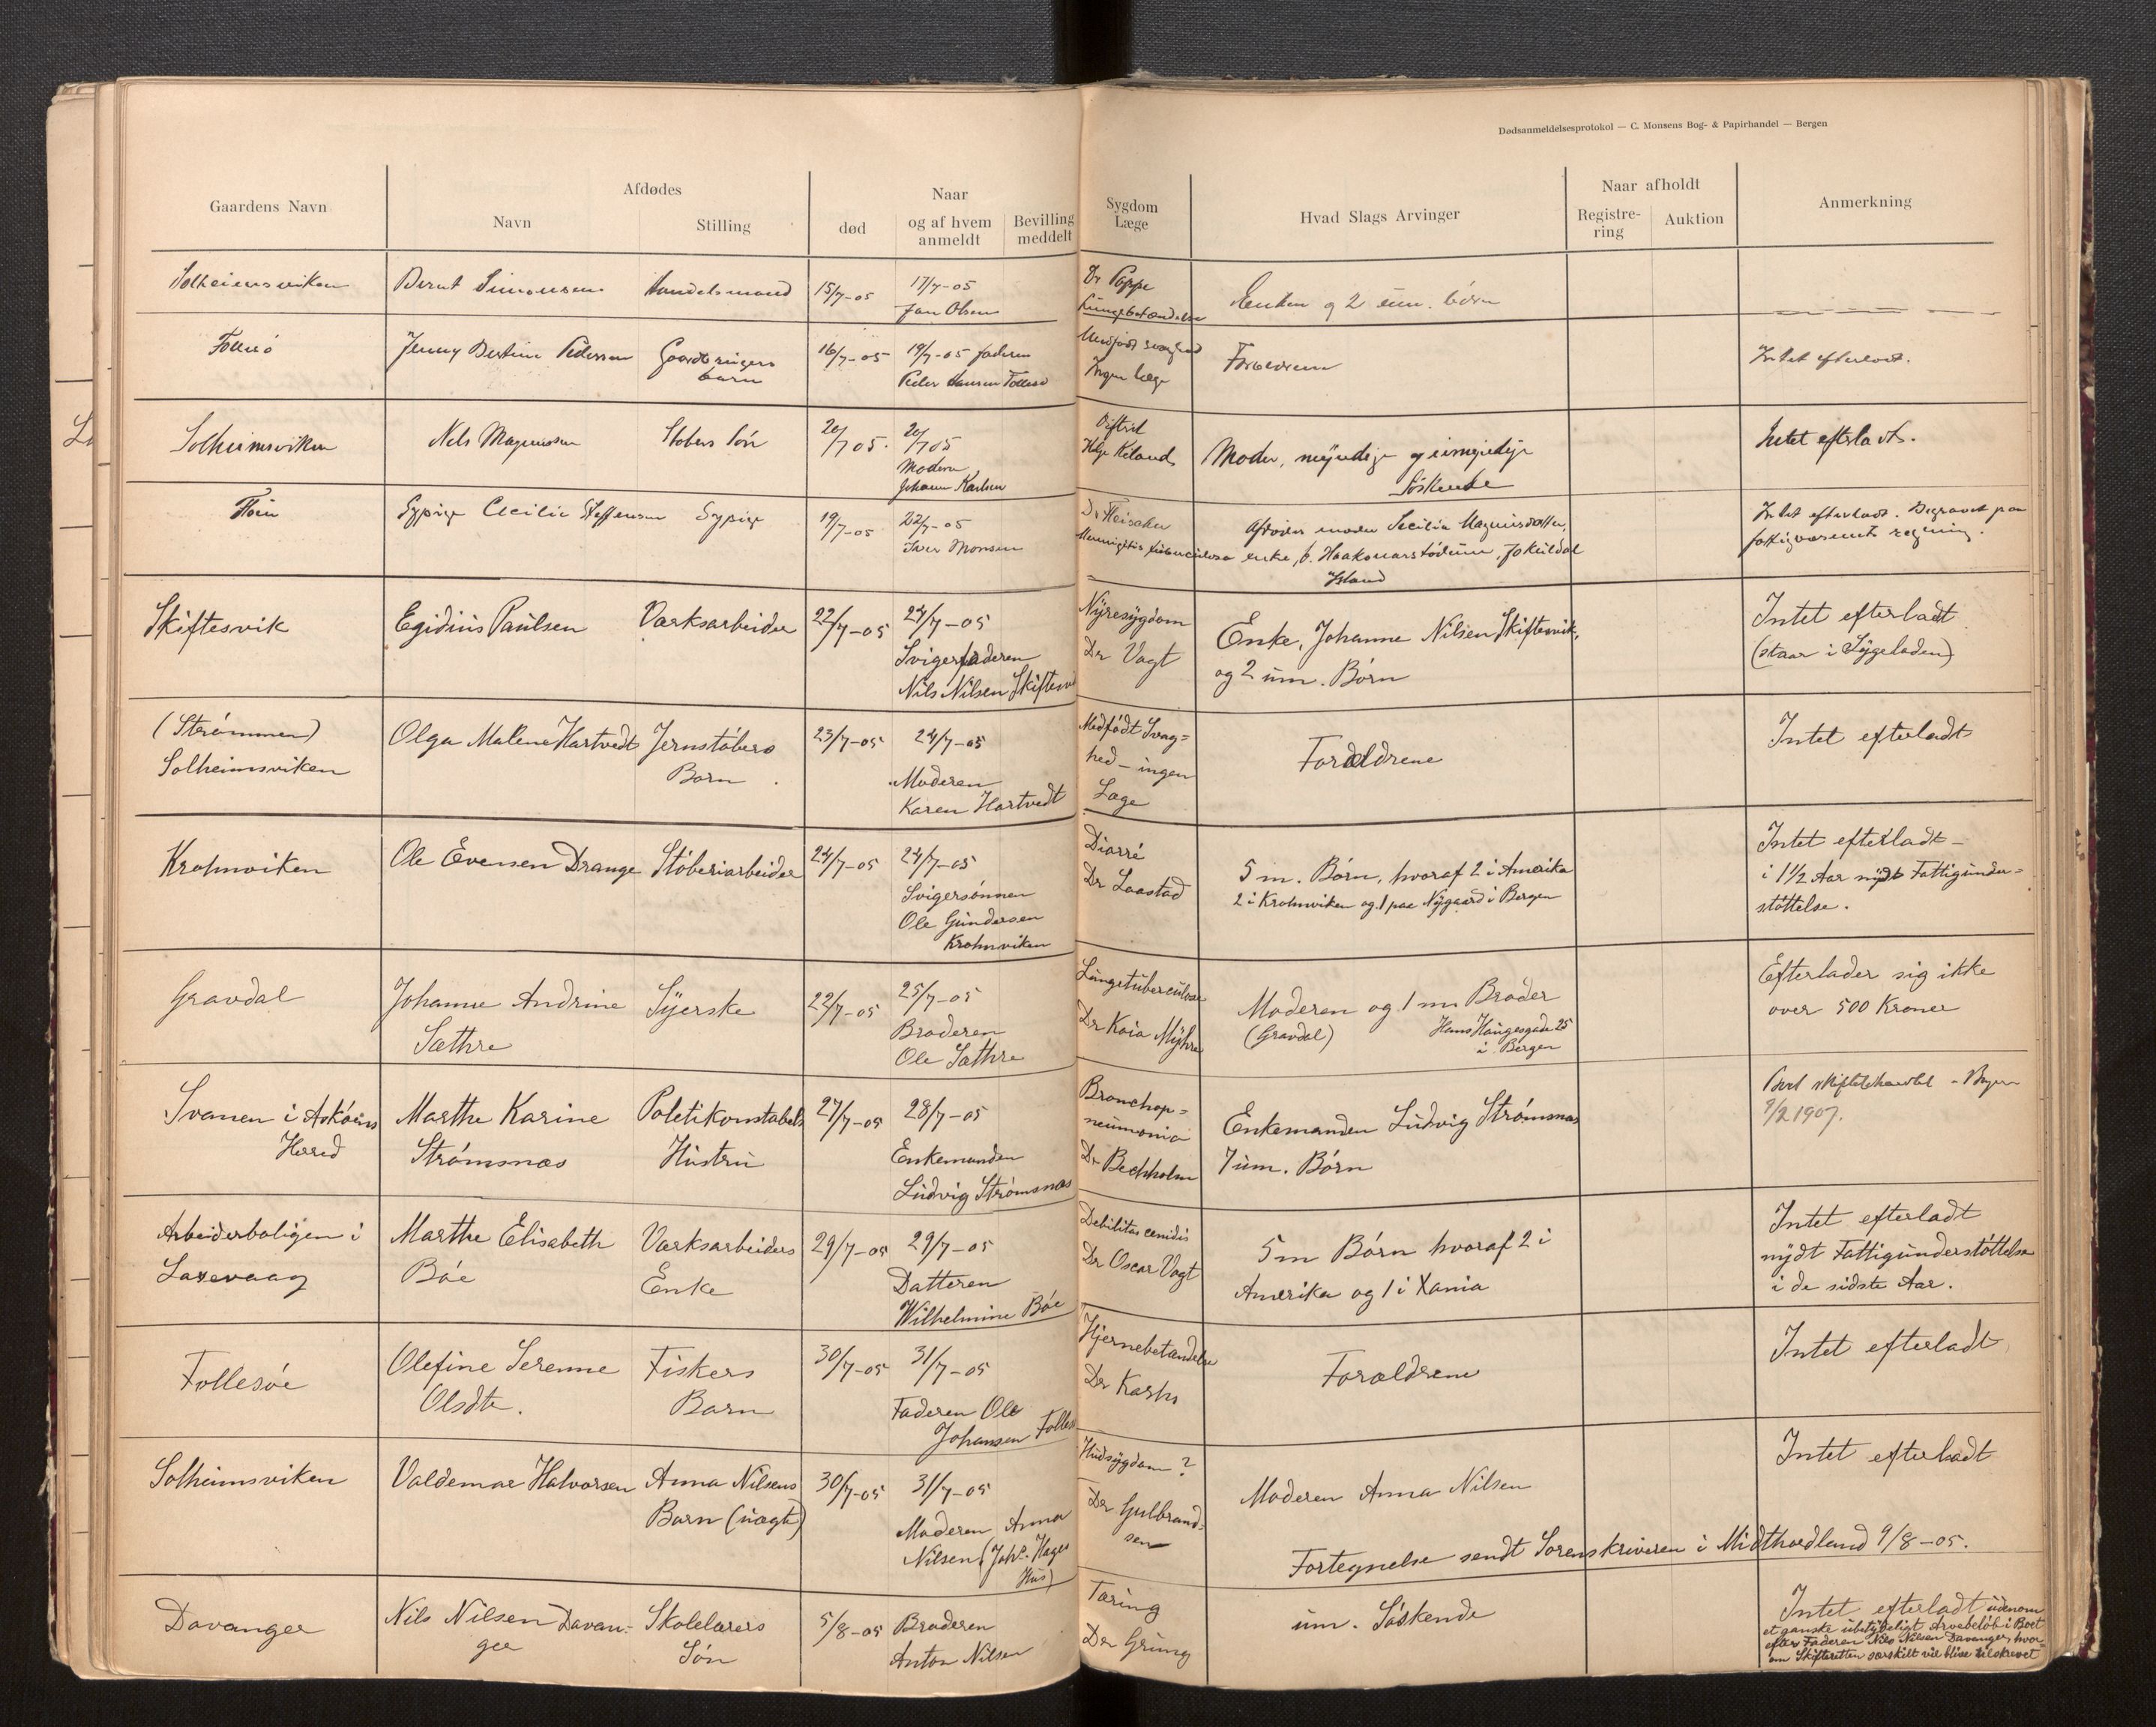 Dødsanmeldelsesprotokol — C. Monsens Bog- & Papirhandel — Bergen
Gaardens Navn
Afdødes
Navn
Stilling
død
Naar
og af hvem
anmeldt
Bevilling
meddelt
Sygdom
Læge
Hvad Slags Arvinger
Naar afholdt
Registre-
ring
Auktion
Anmerkning
Solheimsviken
Bernt Simonsen
Handelsmand
15/7-05
17/7-05
Jan Olsen
Dr Poppe
Lungebetændelse
Enken og 2 um. børn
Follesø
Jenny Bertine Pedersen
Gaardbrugers
barn
16/7-05
19/7-05 faderen
Peder Hansen Follesø
Medfødt svaghed
Ingen læge
Forældrene
Intet efterladt.
Solheimsviken
Nils Magnussen
Støbers Søn
20/7 05.
20/7 05
Moderen
Johanne Karlsen
Diftrit
Helje Keland
Moder, myndige og umyndige
Søskende
Intet efterladt.
Sypige Cecilie Steffensen
Sypige
19/7-05
22/7-05
Iver Monsen
Dr Heiseker
Meningitis tuberculosa
Afdødes moder Cecilia Magnusdotter,
enke, p. Haakonarstødum, Jøkuldal
Island
Intet efterladt. Begravet paa
fattigvæsenets regning.
Skiftesvik
Egidius Paulsen
Værksarbeider
22/7-05
24/7-05
Svigerfaderen
Nils Nilsen Skiftesvi
Nyresygdom
Dr Vogt
Enke, Johanne Nilsen Skiftesvik,
og 2 um. Børn
Intet efterladt
(staar i Sygeladen)
(Strømmen)
Solheimsviken
Olga Malene Hartvedt
Jernstøbers
Barn
23/7-05
24/7-05
Moderen
Karen Hartvedt
Medfødt Svag=
hed - ingen
Læge
Forældrene
Intet efterladt
Krohnviken
Ole Evensen Drange
Støberiarbeider
24/7-05
24/7-05
Svigersønnen
Ole Gundersen
Krohnviken
Diarré
Dr Laastad
5 m. Børn, hvoraf 2 i Amerika
2 i Krohnviken og 1 paa Nygaard i Bergen
Intet efterladt -
i 1 1/2 Aar nydt Fattigunder=
støttelse.
Gravdal
Johanne Andrine
Sæthre
Syerske
22/7-05
25/7-05
Broderen
Ole Sæthre
Lungetuberculose
Dr Kaia Myhre
Moderen og 1 m Broder
(Gravdal)
Hans Haugesgade 25
i Bergen
Efterlader sig ikke
over 500 Kroner
Svanen i Askøens
Herred
Marthe Karine
Strømsnæs
Politikonstabels
Hustru
27/7-05
28/7-05
Enkemanden
Ludvig Strømsnæs
Bronchop=
neumonia
Dr Bechholm
Enkemanden Ludvig Strømsnæs
7 um. Børn
Boet skiftebehandlet - Bergen
9/2 1907.
Arbeiderboligen i
Laxevaag
Marthe Elisabeth
Bøe
Værksarbeiders
Enke
29/7-05
29/7-05
Datteren
Wilhelmine Bøe
Debilitas cenidis
Dr Oscar Vogt
5 m Børn hvoraf 2 i
Amerika og 1 i Xania
Intet efterladt
nydt Fattigunderstøttelse
i de sidste Aar.
Follesøe
Olefine Serenne
Olsdtr.
Fiskers
Barn
30/7-05
31/7-05
Faderen Ole
Johansen Folles
Hjernebetændelse
Dr Karhs
Forældrene
Intet efterladt
Solheimsviken
Valdemar Halvorsen
Anna Nilsens
Barn (uægte)
30/7-05
31/7-05
Moderen Anna
Nilsen (Johs. Hages
Hus)
Hudsygdom?
Dr Gulbrand=
sen
Moderen Anna Nilsen
Intet efterladt
Fortegnelse sendt Sorenskriveren i Midthordland 9/8-05.
Davanger
Nils Nilsen Davan-
ger
Skolelærers
Søn
5/8-05
Broderen
Anton Nilsen
Tæring
Dr Grung
um. Søskende
Intet efterladt udenom
et ganske ubetydeligt Arvebeløb i Boet
efter Faderen Nils Nilsen Davanger, hvor-
om Skifteretten særskilt vil blive tilskrevet